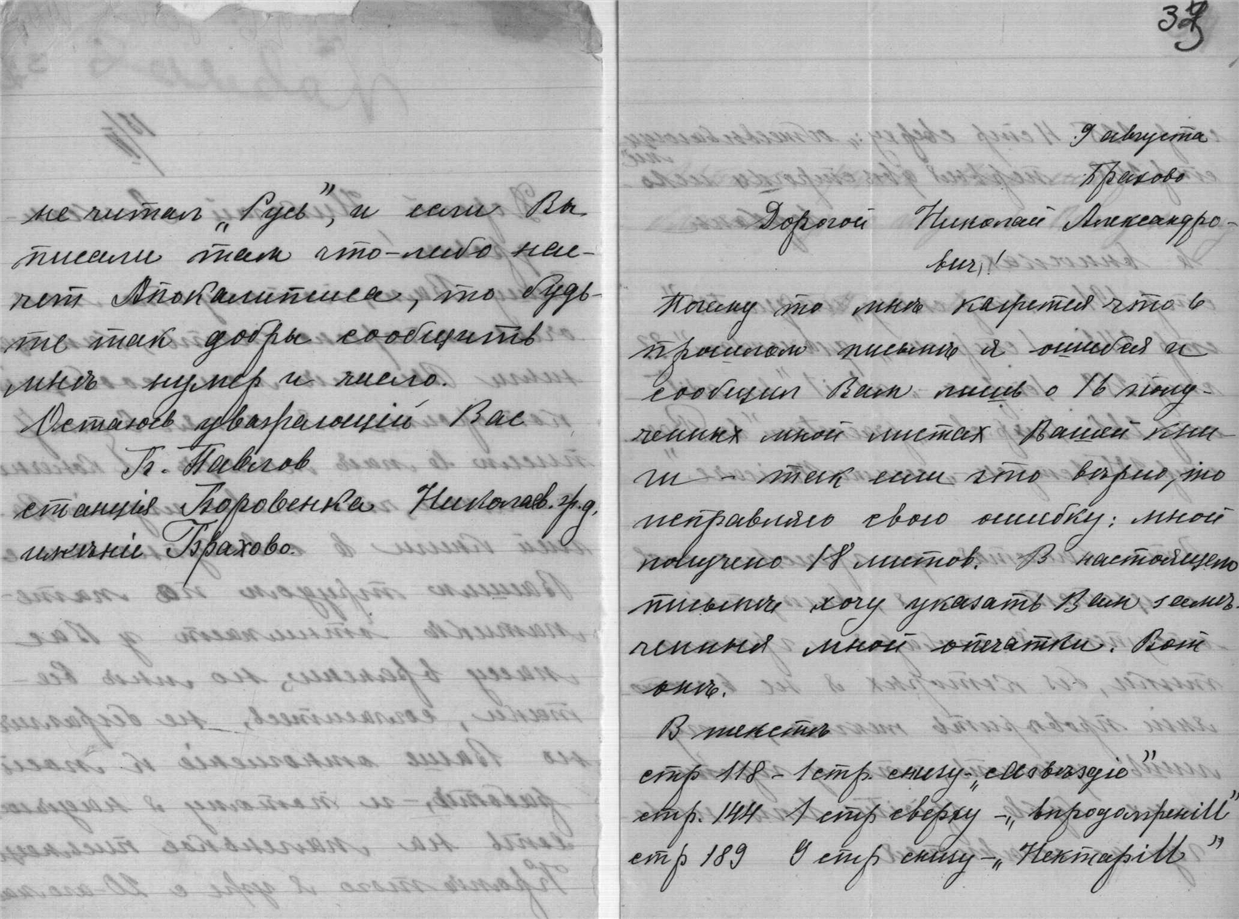 не читал „Русь”, и если Вы
писали там что-либо нас-
чет Апокалипсиса, то будь-
те так добры сообщить
мнѣ нумер и число.
Остаюсь уважающій Вас
П. Павлов
станція Боровенка Николаев. ж. д.
имѣніе Брахово.
39
9 августа
Брахово
Дорогой Николай Александро-
вич,!
Почему то мнѣ кажется что в
прошлом письмѣ я ошибся и
сообщил Вам лишь о 16 полу-
ченных мной листах Вашей кни-
ги – так если это вѣрно, то
исправляю свою ошибку: мной
получено 18 листов. В настоящем
письмѣ хочу указать Вам замѣ-
ченныя мной опечатки. Вот
онѣ.
В текстѣ
стр 118 – 1 стр. снизу – „созвѣздіе”
стр. 144 1 стр сверху – „впродолженіИ”
стр 189 9 стр снизу – „НектаріИ”